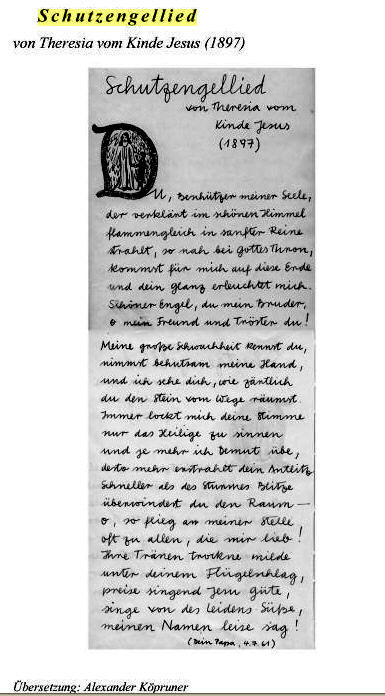 Schutzengellied
von Theresia vom Kinde Jesus (1897)
Schutzengellied
von Theresia vom
Kinde Jesus
(1897)
Du, Beschützer meiner Seele,
der verklärt im schönen Himmel
flammengleich in sanfter Reine
strahlt, so nah bei Gottes Thron,
kommst für mich auf diese Erde
und dein Glanz erleuchtet mich.
Schöner Engel, du mein Bruder,
o mein Freund und Tröster du!
Meine große Schwachheit kennst du,
nimmst behutsam meine Hand,
und ich sehe dich, wie zärtlich
du den Stein vom Wege räumst.
Immer lockt mich deine Stimme
nur das Heilige zu sinnen
und je mehr ich Demut übe,
desto mehr erstrahlt dein Antlitz
Schneller als des Sturmes Blitze
überwindest du den Raum —
o, so flieg an meiner Stelle
oft zu allen, die mir lieb!
Ihre Tränen trockne milde
unter deinem Flügelschlag,
preise singend Jesu Güte,
singe von des Leidens Süße,
meinen Namen leise sag!
(Dein Papa, 4.7.61)
Übersetzung: Alexander Köpruner